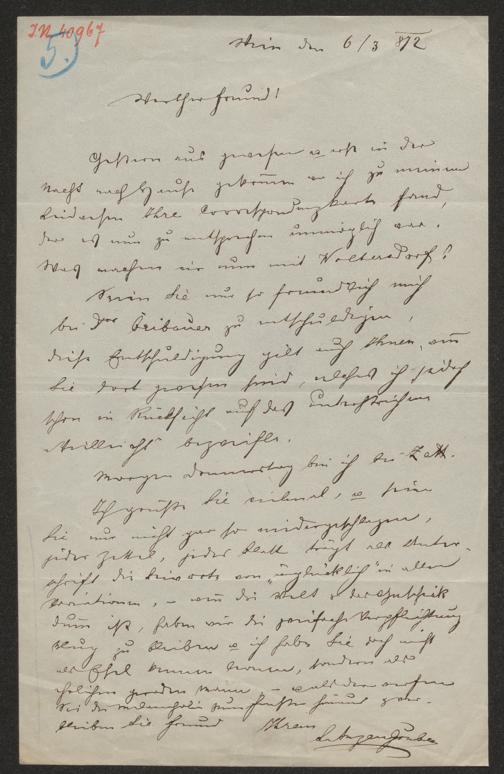 I.N. 40967
5.)
Wien den 6/3 872
Werther Freund!
Gestern aus gewesen u erst in der
Nacht nach Hause gekommen wo ich zu meinem
Leidwesen Ihre Correspondenzkarte fand,
der es nun zu entsprechen unmöglich war.
Was machen wir nun mit Woltersdorf?
Seien Sie nur so freundlich mich
bei Dor zu entschuldigen,
diese Entschuldigung gilt auch Ihnen, wenn
Sie dort gewesen sind, welches ich jedoch
schon in Rücksicht auf das unterstrichene
„vielleicht" bezweifle.
Morgen Donnerstag bin ich bei
Ich grüße Sie vielmal, u seien
Sie nur nicht gar so niedergeschlagen,
jeder Zettel, jedes Blatt trägt als Unter-
schrift die Beiworte von „unglücklich" in allen
Variationen, – wenn die Welt u das Geschick
dum ist, haben wir die zweifache Verpflichtung
klug zu bleiben u ich habe Sie doch nicht
als Esel kennen lernen, sondern als
ehrlichen geraden Mann, –
bleiben Sie Freund Ihrem
L. Anzengruber